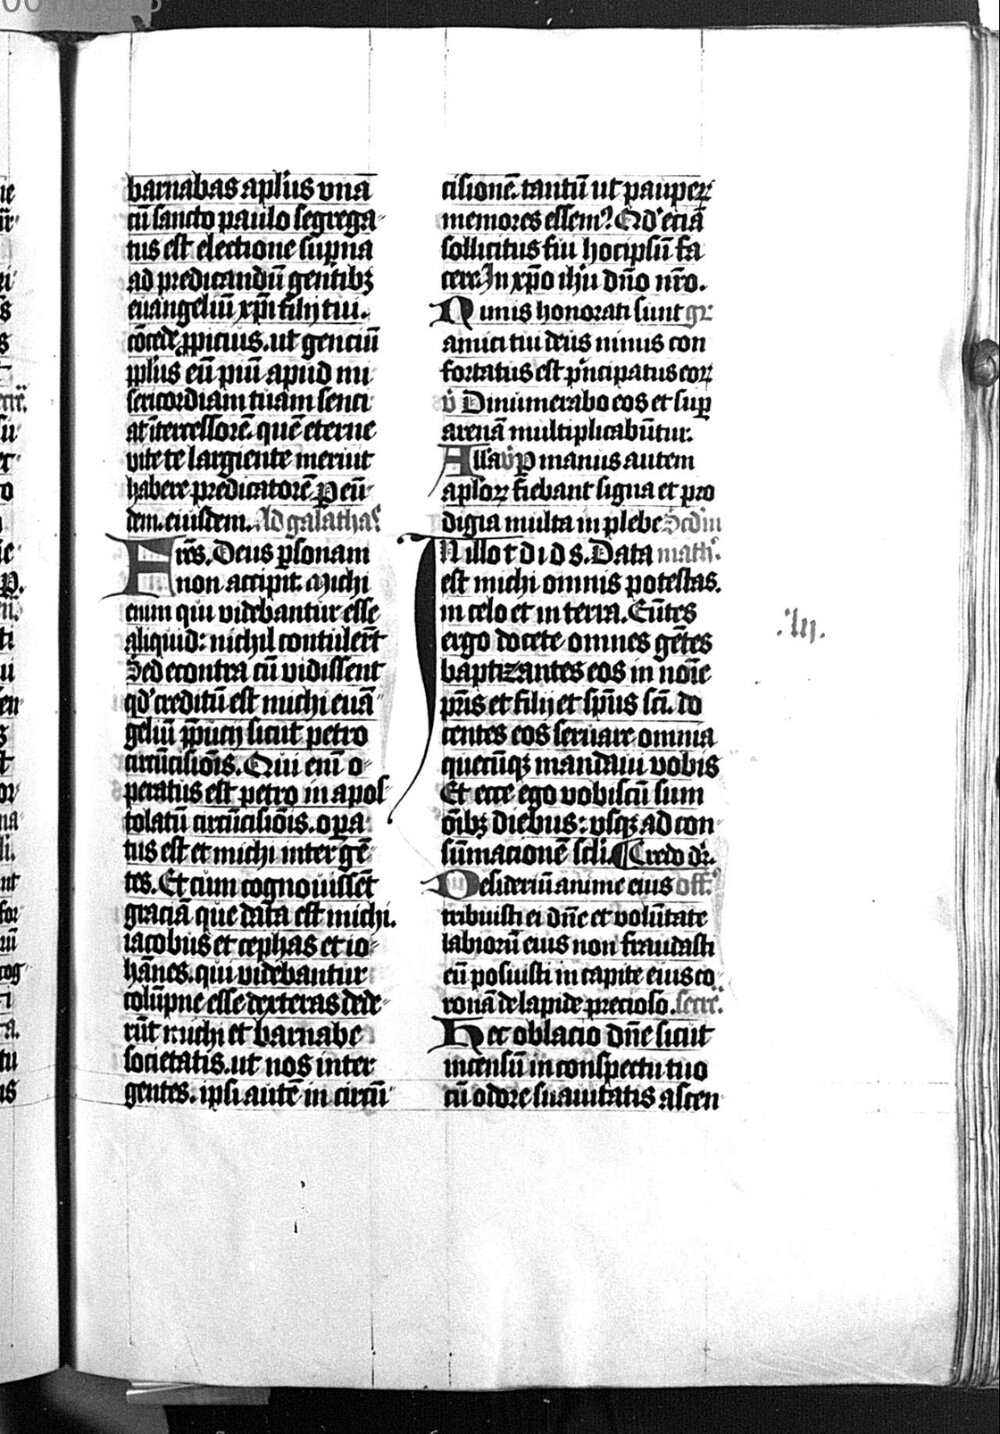 barnabas apl'us vna
cū sancto paulo segrega
tus est electione sup̄na
ad predicandū gentibꝫ
euangeliū xp̄i filij tui.
cōcede ꝓpicius. ut genciū
ppl'us eū piū apud mi
sericordiam tuam senci
at īterressorē. quē eterne
vite te largiente meruit
habere predicatorē. ꝑ eū
dem. eiusdem. Ad galathas
Fres̄. Deus ꝑsonam
non accipit. Michi
enim qui videbantur esse
aliquid: nichil contulerūt
Sed econtra cū vidissent
qd' creditū est michi euā
geliū p̄pucij sicut petro
circūcisiōis. Qui enī o
peratus est petro in apos
tolatū circūcisiōis. oꝑa
tus est et michi inter gē
tes. Et cum cognouissēt
graciā que data est michi.
iacobus et cephas et io
hānes. qui videbantur
colūpne esse dexteras dede
rūt michi et barnabe
societatis. ut nos inter
gentes. ipsi autē in circū
cisionē. tantū ut pauꝑꝝ
memores essem9. Qd' eciā
sollicitus fui hoc ipsū fa
cere. In xp̄o ih̄u dn̄o nr̄o.
Nimis honorati sunt gr
amici tui deus nimis con
fortatus est p̄ncipatus eoꝝ
v̄ Dinumerabo eos et suꝑ
arenā multiplicabūtur.
Alla v̄ ꝑ manus autem
apl'oꝝ fiebant signa et pro
digia multa in plebe Scd'm
In illo t d i d s. Data math'.
est michi omnis potestas.
in celo et in terra. Eūtes
ergo docete omnes gētes
baptizantes eos in noīe
pr̄is et filij et sp̄us sc̄i. do
centes eos seruare omnia
quecūqꝫ mandaui vobis
Et ecce ego vobiscū sum
oībꝫ diebus: vsqꝫ ad con
sūmacionē scl'i. ¶ Credo dr̄.
Desideriū anime eius off.
tribuisti ei dn̄e et volūtate
labiorū eius non fraudasti
eū posuisti in capite eius co
ronā de lapide precioso. secre.
Hec oblacio dn̄e sicut
incensū in conspectu tuo
cū odore suauitatis ascen